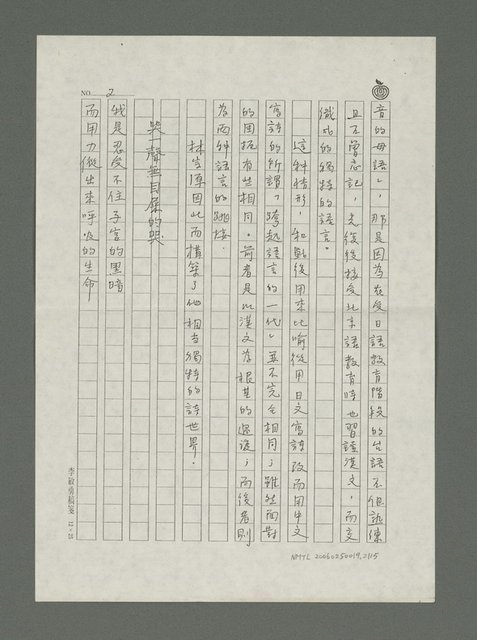 音的母語」，那是因為在受日語教育階段的台語不但熟練
且不曾忘記，光復後接受北京語教育時也習讀漢文，而交
織成的獨特的語言。
這種情形，和戰後用來比喻從用日文寫詩改而用中文
寫詩的所謂「跨越語言的一代」並不完全相同；雖然面對
的困扼有些相同。前者是以漢文為根基的過渡；而後者則
為兩種語言的跳接。
林宗源因此而構築了他相當獨特的詩世界。
哭聲無目屎的哭
我是忍受不住子宮的黑暗
而用力傱出來呼吸的生命
NO 2
李敏勇稿箋
NMTL 20060250019_2115